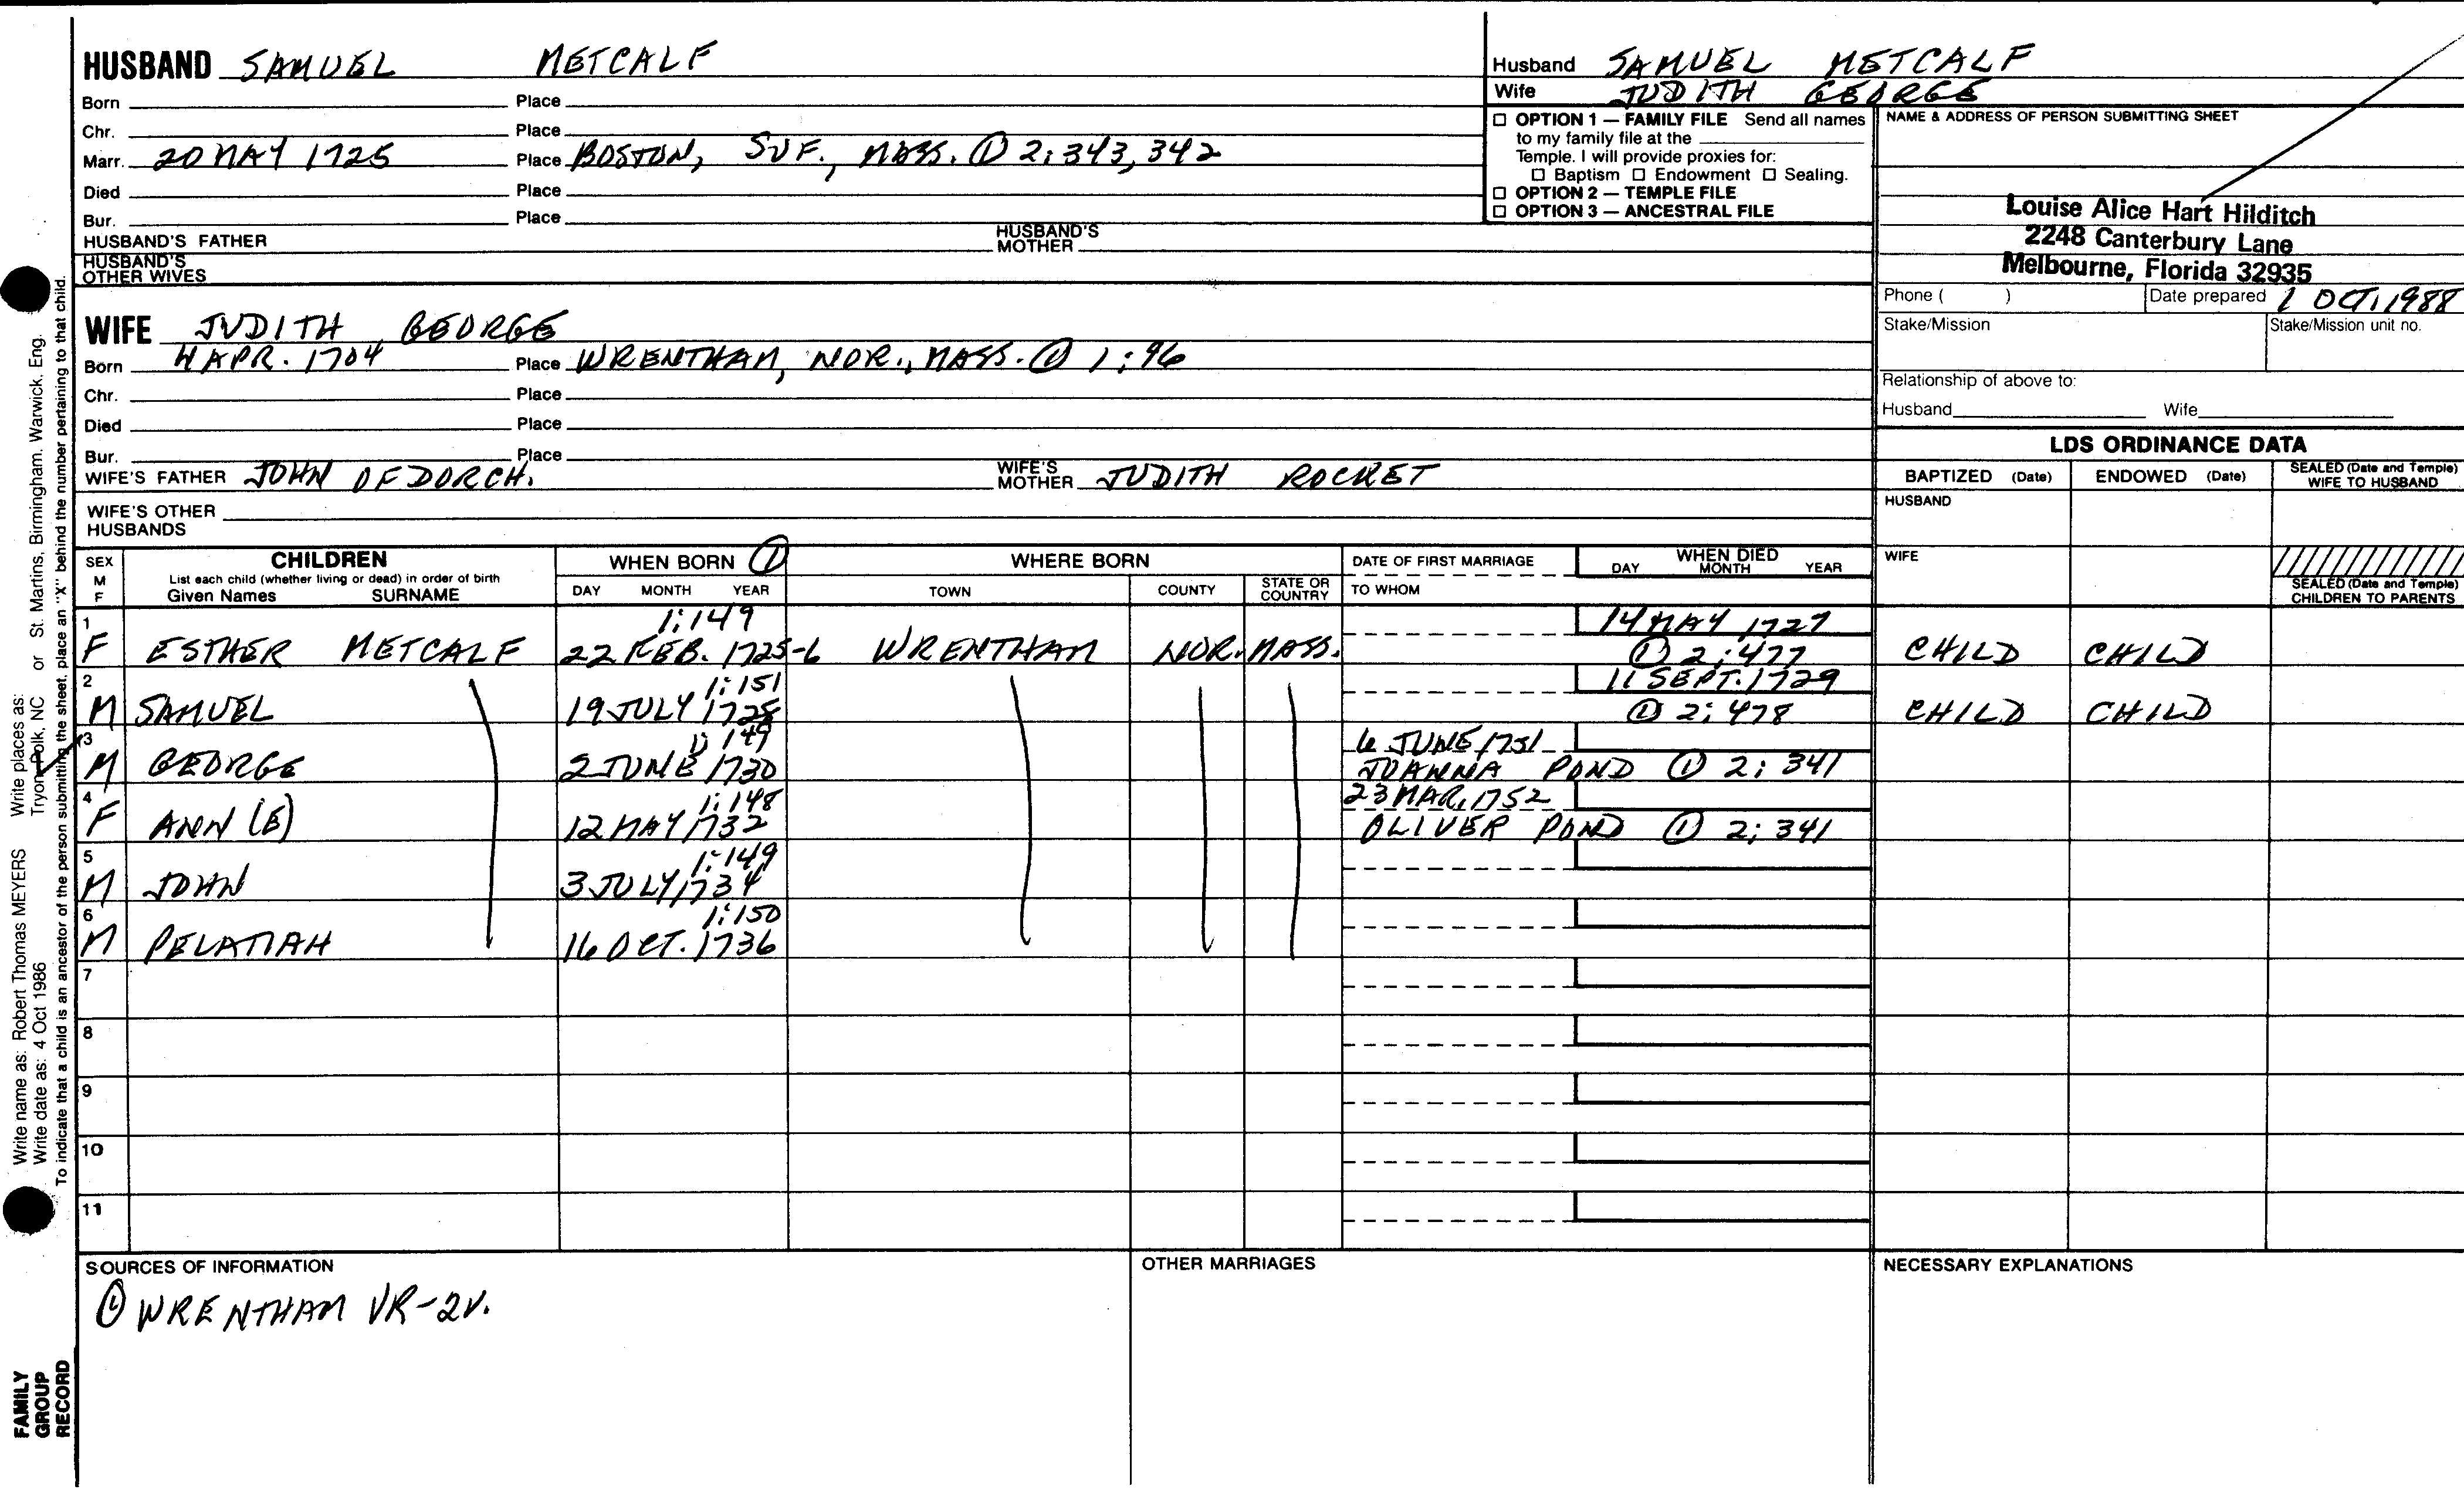 HUSBAND SAMUEL METCALF
Born Place
Chr. Place
Marr. 20 MAY 1725 Place BOSTON, SUF., MASS. ① 2:343,342
Died Place
Bur. Place
HUSBAND'S FATHER HUSBAND'S MOTHER
HUSBAND'S OTHER WIVES
WIFE JUDITH GEORGE
Born 4 APR. 1704 Place WRENTHAM, NOR., MASS. ① 1:96
Chr. Place
Died Place
Bur. Place
WIFE'S FATHER JOHN OF DORCH. WIFE'S MOTHER JUDITH ROCKET
WIFE'S OTHER HUSBANDS
Husband SAMUEL METCALF
Wife JUDITH GEORGE
☐ OPTION 1 — FAMILY FILE Send all names
to my family file at the
Temple. I will provide proxies for:
☐ Baptism ☐ Endowment ☐ Sealing.
☐ OPTION 2 — TEMPLE FILE
☐ OPTION 3 — ANCESTRAL FILE
NAME & ADDRESS OF PERSON SUBMITTING SHEET
Louise Alice Hart Hilditch
2248 Canterbury Lane
Melbourne, Florida 32935
Phone ( ) Date prepared 1 OCT. 1988
Stake/Mission Stake/Mission unit no.
Relationship of above to:
Husband Wife
LDS ORDINANCE DATA
BAPTIZED (Date) ENDOWED (Date) SEALED (Date and Temple) WIFE TO HUSBAND
HUSBAND
WIFE
SEALED (Date and Temple) CHILDREN TO PARENTS
SEX M F
CHILDREN
List each child (whether living or dead) in order of birth
Given Names SURNAME
WHEN BORN ①
DAY MONTH YEAR
WHERE BORN
TOWN COUNTY STATE OR COUNTRY
DATE OF FIRST MARRIAGE
TO WHOM
WHEN DIED
DAY MONTH YEAR
1 1:149 14 MAY 1727
F ESTHER METCALF 22 FEB. 1725-6 WRENTHAM NOR. MASS. ① 2:477 CHILD CHILD
2 1:151 11 SEPT. 1729
M SAMUEL 19 JULY 1728 ① 2:478 CHILD CHILD
3 1:149 6 JUNE 1751
M GEORGE 2 JUNE 1730 JOANNA POND ① 2:341
4 1:148 23 MAR. 1752
F ANN (E) 12 MAY 1732 OLIVER POND ① 2:341
5 1:149
M JOHN 3 JULY 1734
6 1:150
M PELATIAH 16 OCT. 1736
7
8
9
10
11
SOURCES OF INFORMATION
① WRENTHAM VR-2V.
OTHER MARRIAGES
NECESSARY EXPLANATIONS
Write name as: Robert Thomas MEYERS Write places as: Tryon, Polk, NC or St. Martins, Birmingham, Warwick, Eng.
Write date as: 4 Oct 1986
To indicate that a child is an ancestor of the person submitting the sheet, place an "X" behind the number pertaining to that child.
FAMILY
GROUP
RECORD